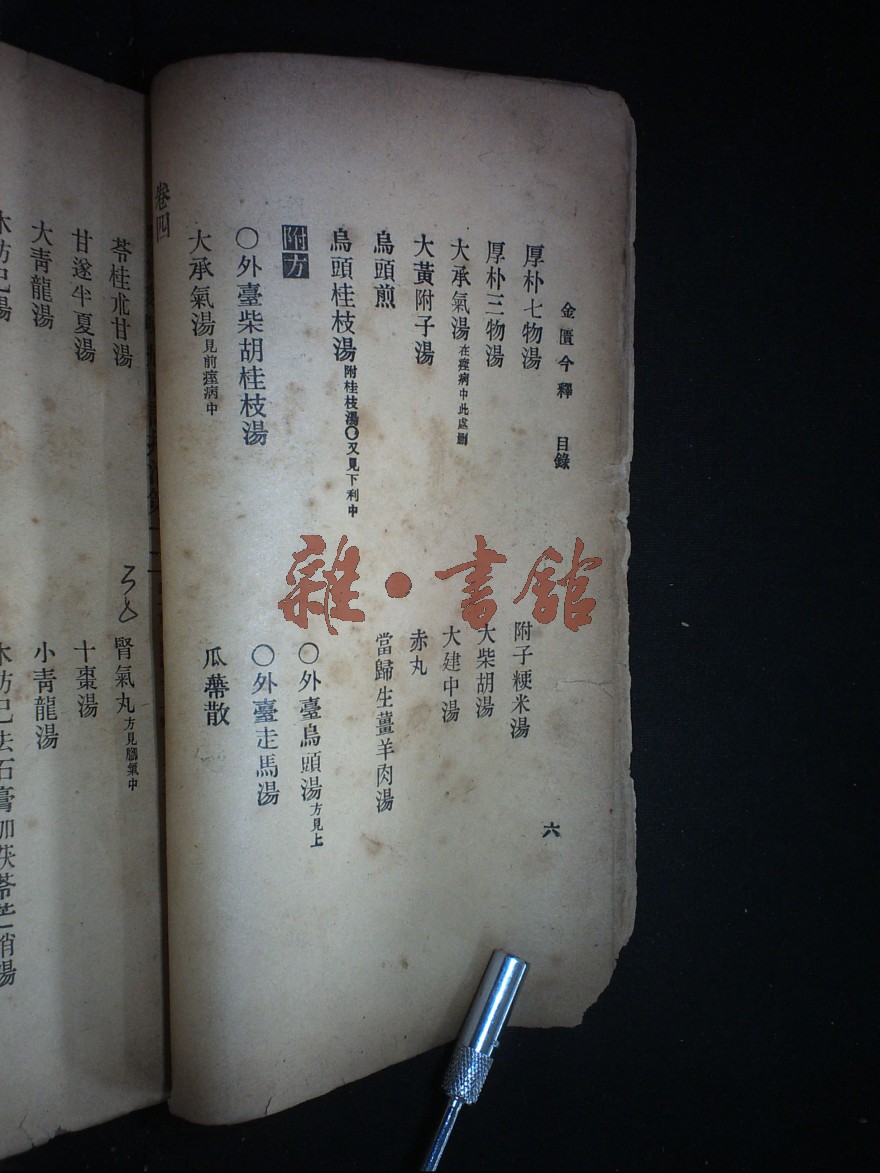 金匱今釋 目錄 六
厚朴七物湯 附子粳米湯
厚朴三物湯 大柴胡湯
大承氣湯在痙病中此處刪 大建中湯
大黃附子湯 赤丸
烏頭煎 當歸生薑羊肉湯
烏頭桂枝湯附桂枝湯〇又見下利中
附方 〇外臺烏頭湯方見上
〇外臺柴胡桂枝湯 〇外臺走馬湯
大承氣湯見前痙病中 瓜蒂散
卷四
苓桂朮甘湯 腎氣丸方見腳氣中
甘遂半夏湯 十棗湯
大青龍湯 小青龍湯
木防己湯 木防己去石膏加茯苓芒硝湯
雜·書館